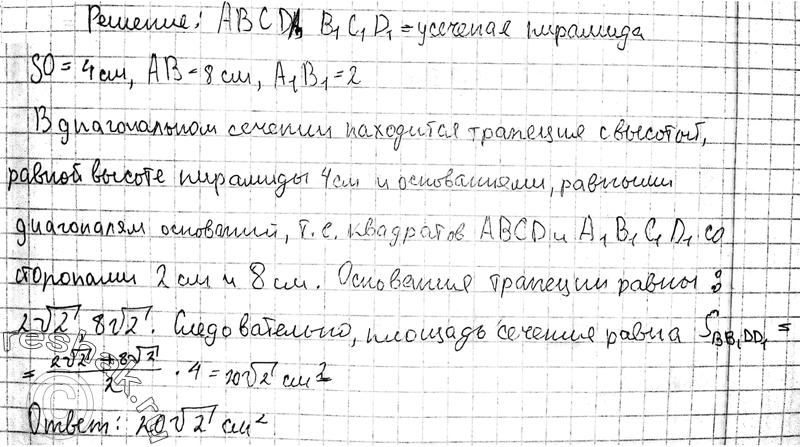 Решение: ABCDA₁ B₁C₁D₁ = усеченая пирамида
SO = 4 см, AB = 8 см, A₁B₁ = 2
В диагональном сечении находится трапеция с высотой,
равной высоте пирамиды 4 см и основаниями, равными
диагоналям оснований, т.е. квадратов ABCD и A₁B₁C₁D₁ со
сторонами 2 см и 8 см. Основания трапеции равны:
2√2, 8√2. Следовательно, площадь сечения равна S_{BB₁DD₁} =
= (2√2 + 8√2)/2 · 4 = 20√2 см²
Ответ: 20√2 см²
reshak.ru